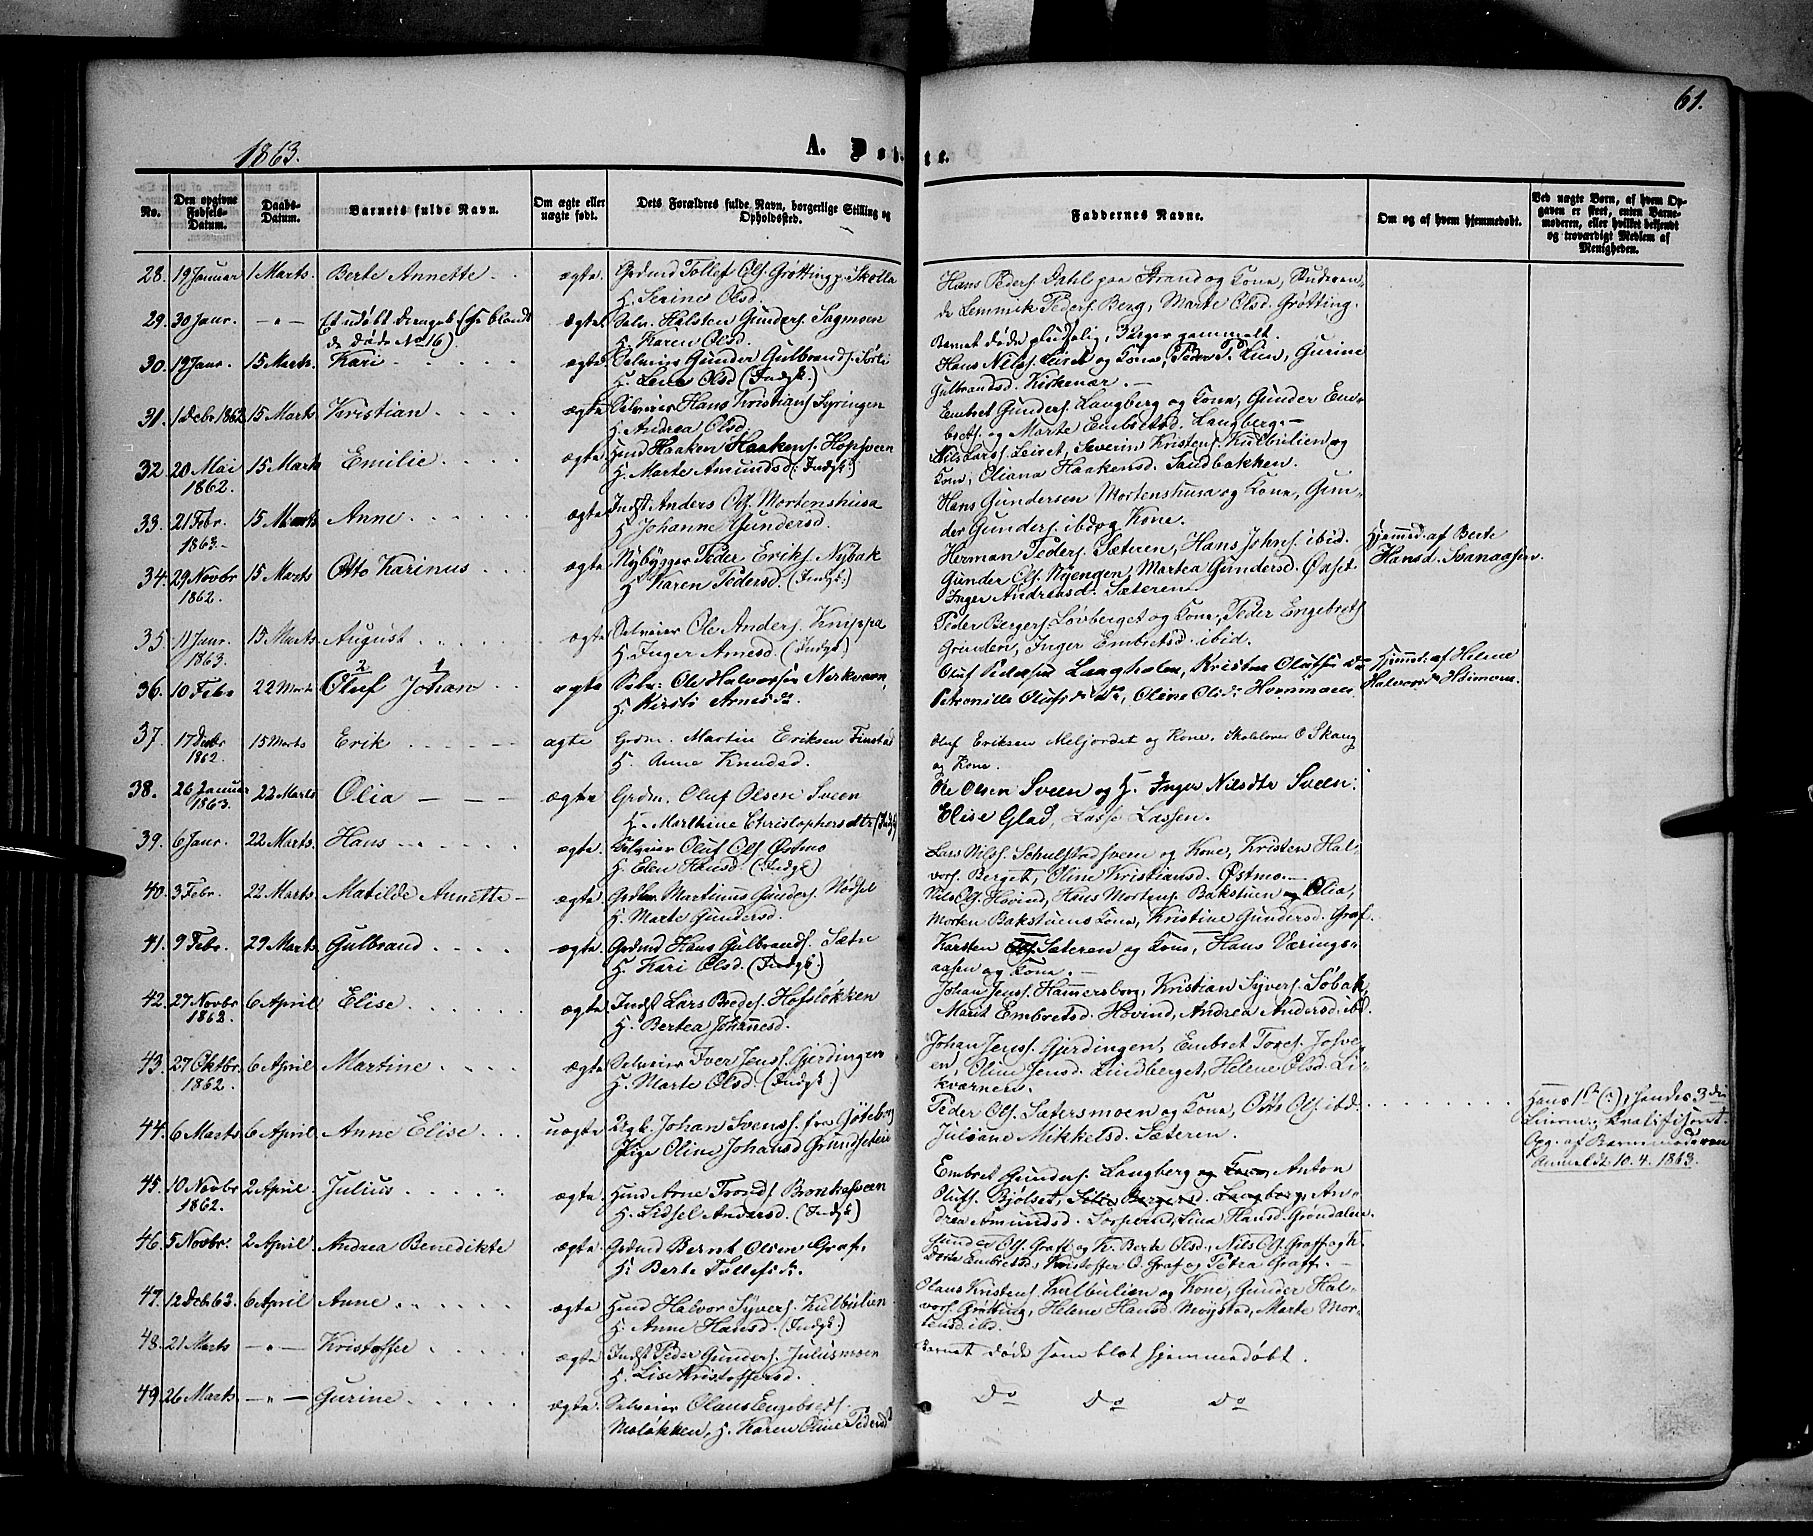 61.
1863.
A. Døbte.
No.
Den opgivne Fødsels-Datum.
Daabs-Datum.
Barnets fulde Navn.
Om ægte eller uægte født.
Dets Forældres fulde Navn, borgerlige Stilling og Opholdssted.
Faddernes Navne.
Om og af hvem hjemmedøbt.
Ved uægte Børn, af hvem Opgaven er skeet, enten Barnemoderen, eller hvilket bekjendt og troværdigt Medlem af Menigheden.
28. 19 Januar 1 Marts. Berte Annette ægte Grdmd Tollef Ols. Grøtting p. Skolla
H. Serine Olsd.
Hans Peders. Dahl paa Strand og Kone,
Lemmik Peders. Berg, Marte Olsd. Grøtting.
29. 30 Janr. -"- Et udøbt Drengeb. (se blandt
de Døde No 16)
ægte Selv. Halsten Gunders. Sagmoen
H. Karen Olsd.
Barnet døde pludselig, 3 Uger gammelt.
30. 17 Janr. 15 Marts. Kari ægte Selveier Gunder Gulbrands.
H. Lena Olsd (Indgk.)
Hans Nilss. Leiret og Kone, Peder T. Lien, Gurine
Gulbrandsd. Kirkenær.
31. 1 Debr 1862 15 Marts Kristian ægte Selveier Hans Kristians. Syringen
H. Andrea Olsd.
Embret Gunders. Langberg og Kone, Gunder Em-
brets. og Marte Embretsd. Langberg.
32. 20 Mai
1862. 15 Marts Emilie ægte Hmd Haaken Haakens. Hopsveen
H. Marte Amundsd. (Indgk.)
Nils Larss. Leiret, Severin Kristens. Kulbulien og
Kone, Oliana Haakensd. Sandbakken.
33. 21 Febr.
1863. 15 Marts Anne ægte Indst Anders Ols. Mortenshusa
H. Johanne Gundersd.
Hans Gundersen Mortenshusa og Kone, Gun-
der Gunders. ibd og Kone.
34. 29 Novbr
1862. 15 Marts Otto Karinus ægte Nybygger Peder Eriks. Nybak
H. Karen Pedersd. (Indgk.)
Herman Peders. Sæteren, Hans Johns. ibid.
Gunder Ols. Nyengen, Martea Gundersd. Øaset.
Inger Andreasd. Sæteren.
Hjemmed. af Berte
Hansd. Svanaasen.
35. 11 Janr.
1863. 15 Marts August ægte Selveier Ole Anders. Knippa
H. Inger Arnesd. (Indgk.)
Peder Bergers. Løvberget og Kone, Peder Engebrets.
Grunden, Inger Embretsd. ibid.
36. 10 Febr 22 Marts 2 Oluf 1 Johan ægte Selv. Ole Halvorsen Nerkveen,
H. Kirsti Arnesdr.
Oluf Pedersen Langholen, Kristen Olufsen do
Petronille Olufsdr do, Oline Olsdr Hommoen.
Hjemmed. af Helene
Halvorsdr Heimoen.
37. 17 Decbr
1862. 15 Marts Erik ægte Grdm. Martin Eriksen Finstad
H. Anne Knudsd.
Oluf Eriksen Meljordet og Kone. Skolelærer O Skaug
og Kone.
38. 26 Januar
1863. 22 Marts Olia ægte Grdm. Oluf Olsen Sveen
H. Marthine Christophersdtr (Indgk)
Ole Olsen Sveen og H. Inger Nilsdtr Sveen:
Elise Glad, Lasse Lassen.
39. 6 Janr. 22 Marts. Hans ægte Selveier Oluf Ols. Østmo
H. Elen Hansd. (Indgk)
Lars Nilss. Schulstadsveen og Kone, Kristen Hal-
vors. Berget, Oline Kristiansd. Østmo
40. 3 Febr. 22 Marts Matilde Annette ægte Grdbr Martinus Gunders. Nødsel
H. Marte Gundersd.
Nils Ols. Hovind, Hans Mortens. Bakstuen og Olia,
Morten Bakstuens Kone, Kristine Gundersd. Graf.
41. 9 Febr. 29 Marts Gulbrand ægte Grdmd Hans Gulbrands. Sætre
H. Kari Olsd. (Indgk.)
Karsten Sæteren og Kone, Hans Værings-
aasen og Kone.
42. 27 Novbr
1862. 6 April Elise ægte Indst Lars Bredes. Hofsløkken
H. Bertea Johannesd.
Johan Jenss. Hamersborg, Kristian Syvers. Søbak,
Marit Embretsd. Hovind, Andrea Andersd. ibd.
43. 27 Oktbr.
1862. 6 April Martine ægte Selveier Iver Jenss. Gjerdingen
H. Marte Olsd (Indgk.)
Johan Jenss. Gjerdingen, Embret Tores. Josve-
en, Oline Jensd. Lindberget, Helene Olsd. Li-
kværnen.
44. 6 Marts 6 April Anne Elise uægte Ugk. Johan Svenss. fra Gøteborg
Pige Oline Johansd Grundsetien
Peder Ols. Sætersmoen og Kone, Otto Ols. ibd.
Juliane Mikkelsd. Sæteren.
Hans 1ste (?), hendes 3die
Leierm.; kvalificeret.
Opg. af Barnemoderen
Anmeldt 10.4.1863.
45. 10 Novbr
1862. 2 April Julius ægte Hmd Arne Tronds. Bronkesveen
H. Sidsel Andersd. (Indgk)
Embret Gunders. Langberg og Kone, Anton
Olufs. Bjølset, Bergersd. Langberg, An-
drea Amundsd. Lina Hansd. Grøndalen
46. 5 Novbr. 2 April Andrea Benedikte ægte Grdmd Bernt Olsen Graf,
H. Berte Tollefsdr.
Ols. Graff og K. Berte Olsd., Nils Ols. Graff og h.
Dorte Embretsd, Kristoffer O. Graf og Petra Graff.
47. 12 Debr 63. 6 April Anne ægte Hmd Halvor Syvers. Kulbulien
H. Anne Hansd. (Indgk.)
Olaus Kristens. Kulbulien og Kone, Gunder Hal-
vors. Grøtting, Helene Hansd. Moystad, Marte Mor-
tensd. ibd.
48. 21 Marts -"- Kristoffer ægte Indst Peder Gunders. Juliusmoen
H. Lise Kristoffersd.
Barnet døde som blot hjemmedøbt.
49. 26 Marts -"- Gurine ægte Selveier Olaus Engebrets.
Moløkken, H. Karen Oline Pedersd
Do Do Do